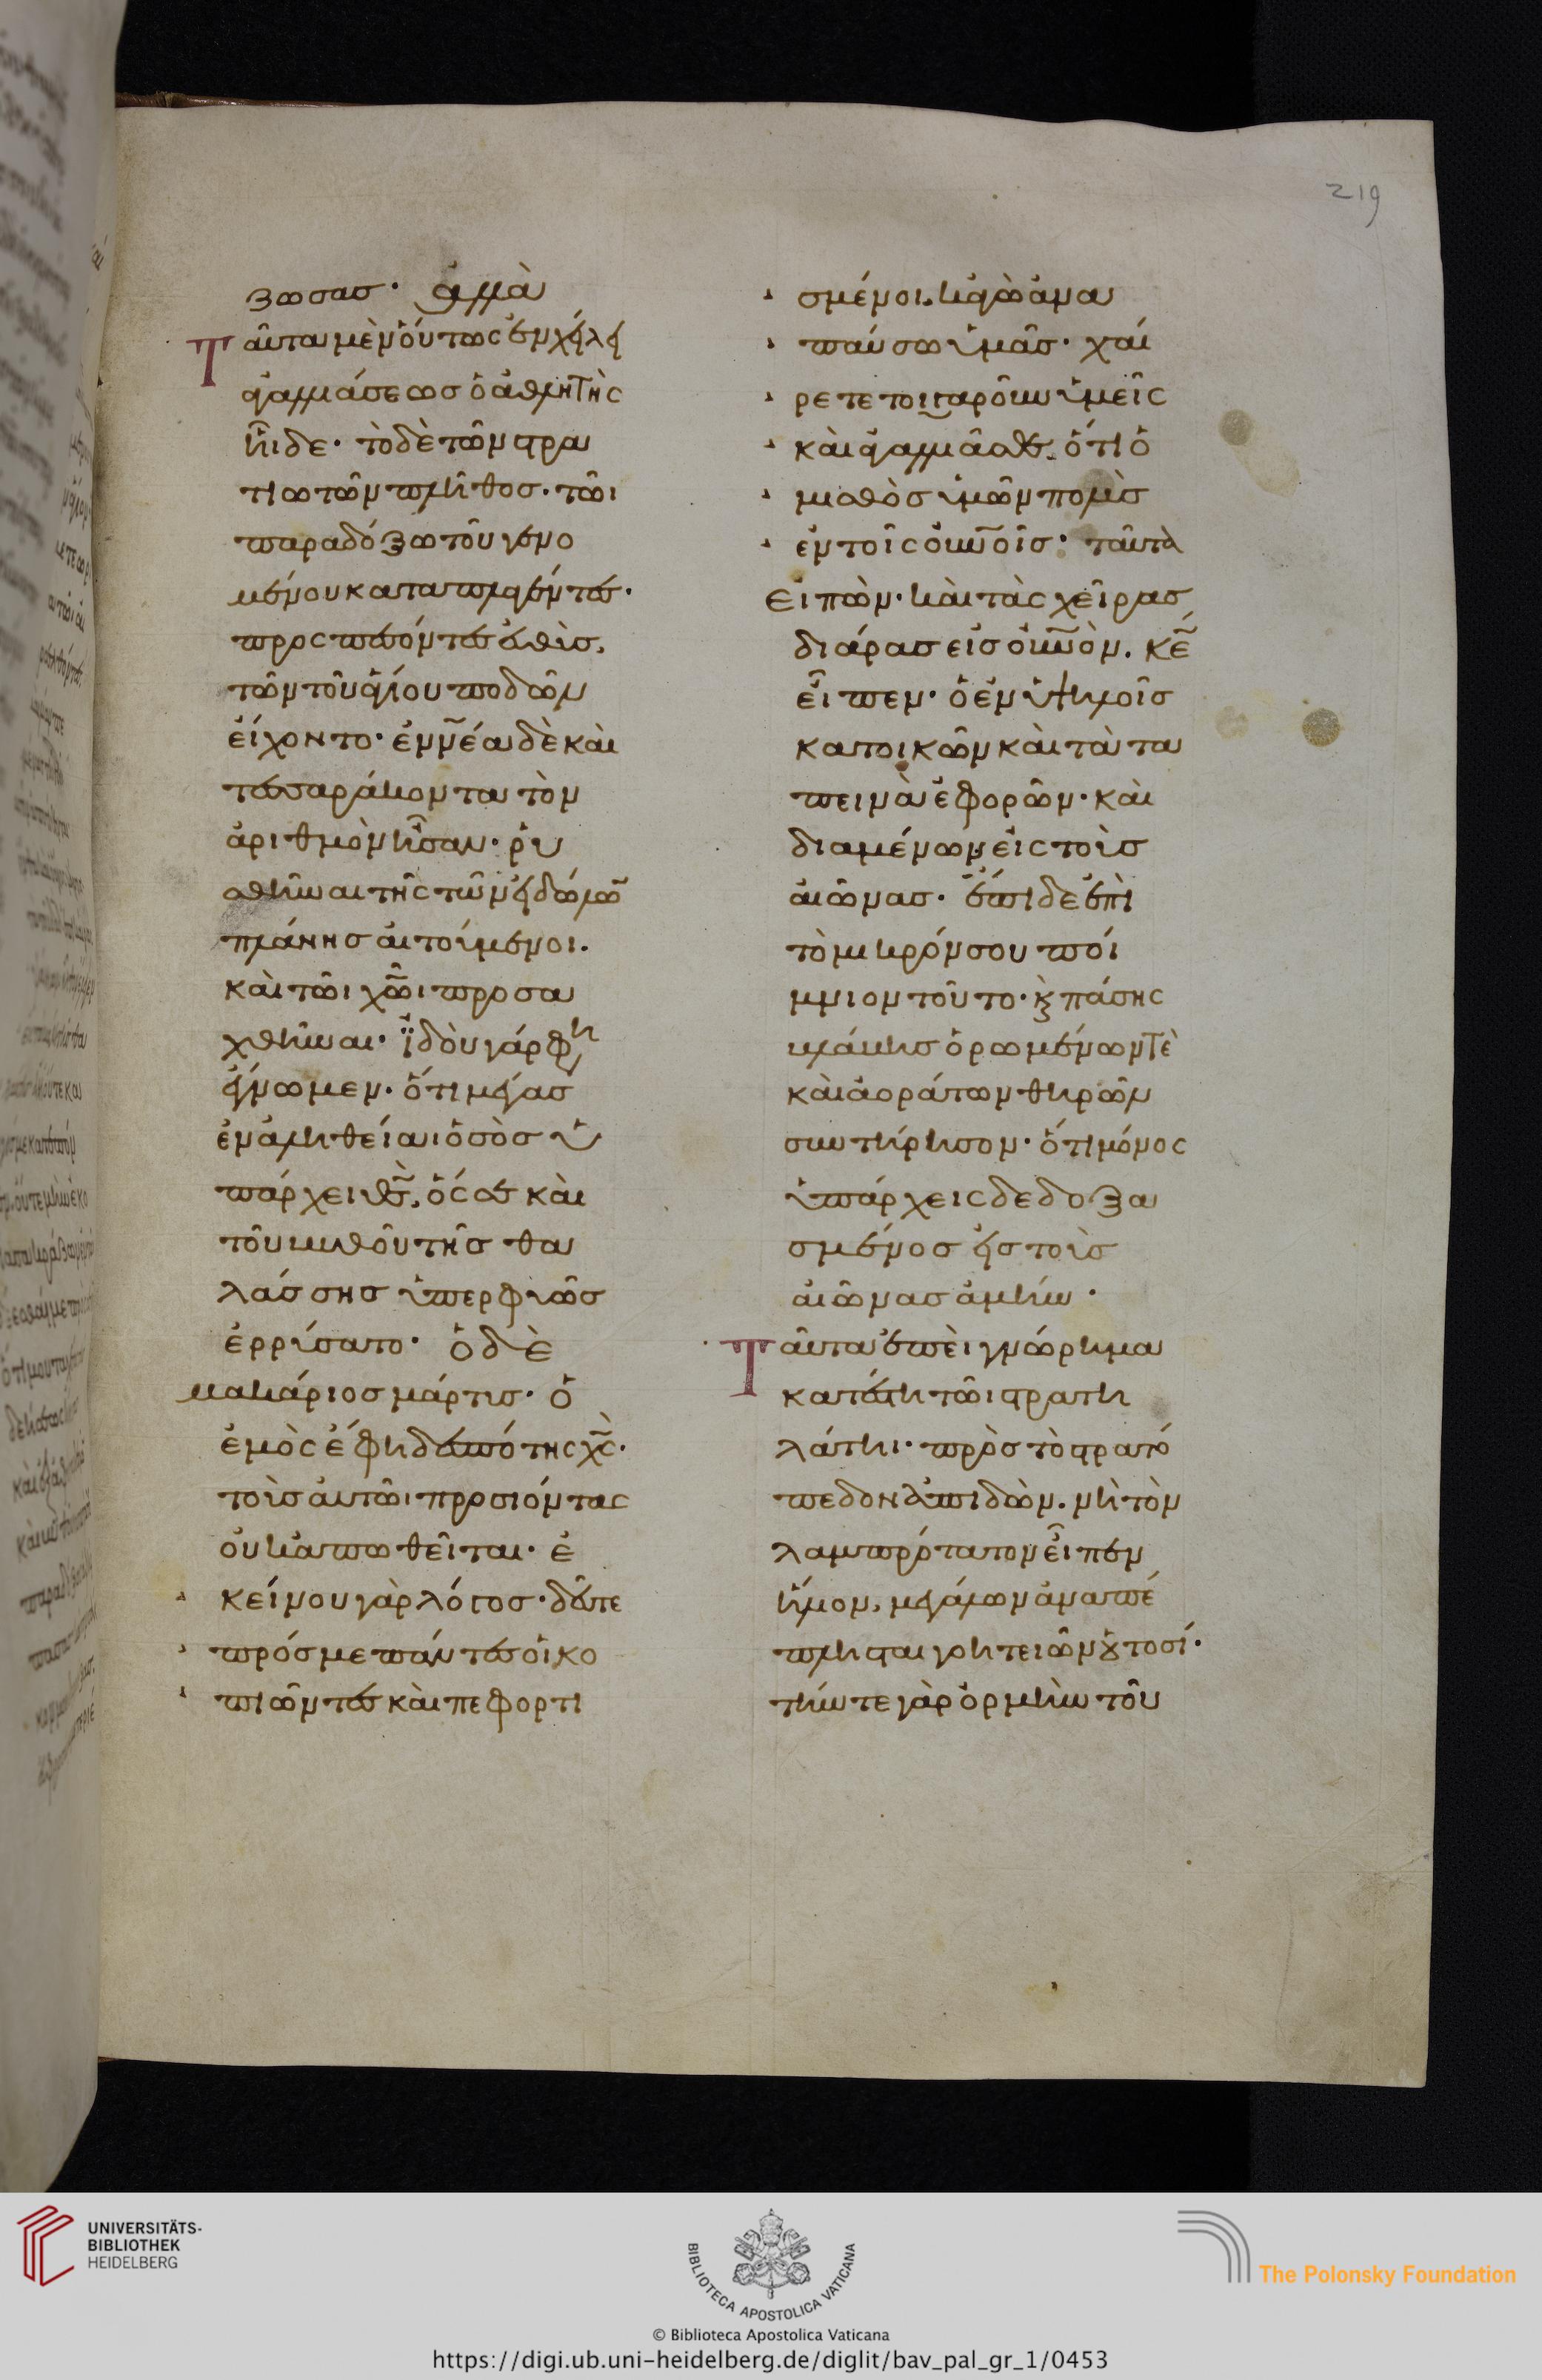 219
ξωσας· ἀλλὰ
Ταῦτα μὲν οὕτως ἐν χείλει
ἀγαλλιάσεως ὁ ἀθλητὴς
ᾖδε· τὸ δὲ τῶν στρα
τιωτῶν πλῆθος· τῶι
παραδόξω τοῦ γενο
μένου καταπλαγέντες·
προσπεσόντες εὐθὺς,
τῶν τοῦ ἁγίου ποδῶν
εἴχοντο· ἐννέα δὲ καὶ
τεσσαράκοντα τὸν
ἀριθμὸν ἦσαν· ῥυ
σθῆναι τῆς τῶν εἰδώλω̅
πλάνης αἰτούμενοι.
καὶ τῶι χ̅ω̅ι προσα
χθῆναι· ἰδοὺ γάρ φη
ἔγνωμεν· ὅτι μέγας
ἐν ἀληθείαι ὁ σὸς ὑ
πάρχει θ̅ς̅, ὅς σε καὶ
τοῦ βυθοῦ τῆς θα
λάσσης ὑπερφυῶς
ἐρρύσατο· ὁ δὲ
μακάριος μάρτυς· ὁ
ἐμὸς ἔφη δεσπότης χ̅ς̅·
τοὺς αὐτῶι προσιόντας
οὐκ ἀπωθεῖται· ἐ
κείνου γὰρ λόγος· δεῦτε
πρός με πάντες οἱ κο
πιῶντες καὶ πεφορτι
σμένοι. κἀγὼ ἀνα
παύσω ὑμᾶς· χαί
ρετε τοιγαροῦν ὑμεῖς
καὶ ἀγαλλιᾶσθε. ὅτι ὁ
μισθὸς ὑμῶν πολὺς
ἐν τοῖς οὐ̅ν̅οῖς· ταῦτα
εἰπὼν· καὶ τὰς χεῖρας
διάρας εἰς οὐ̅ν̅ὸν. κ̅ε̅
εἶπεν· ὁ ἐν ὑψηλοῖς
κατοικῶν καὶ τὰ τα
πεινὰ ἐφορῶν· καὶ
διαμένων εἰς τοὺς
αἰῶνας· ἔπιδε ἐπὶ
τὸ μικρόν σου ποί
μνιον τοῦτο· κἀξ πάσης
βλάβης ὁρωμένων τὲ
καὶ ἀοράτων θηρῶν
συντήρησον· ὅτι μόνος
ὑπάρχεις δεδοξα
σμένος εἰς τοὺς
αἰῶνας ἀμήν·
Ταῦτα ἐπεὶ γνώριμα
κατέστη τῶι στρατη
λάτηι· πρὸς τὸ στρατό
πεδον ἀπιδὼν. μὴ τὸν
λαμπρότατον εἶπεν
ἥλιον, μεγάλων ἀναπέ
πλησται γοητειῶν οὑτοσί·
τήν τε γὰρ ὁρμὴν τοῦ
UNIVERSITÄTS-
BIBLIOTHEK
HEIDELBERG
BIBLIOTECA APOSTOLICA VATICANA
The Polonsky Foundation
© Biblioteca Apostolica Vaticana
https://digi.ub.uni-heidelberg.de/diglit/bav_pal_gr_1/0453